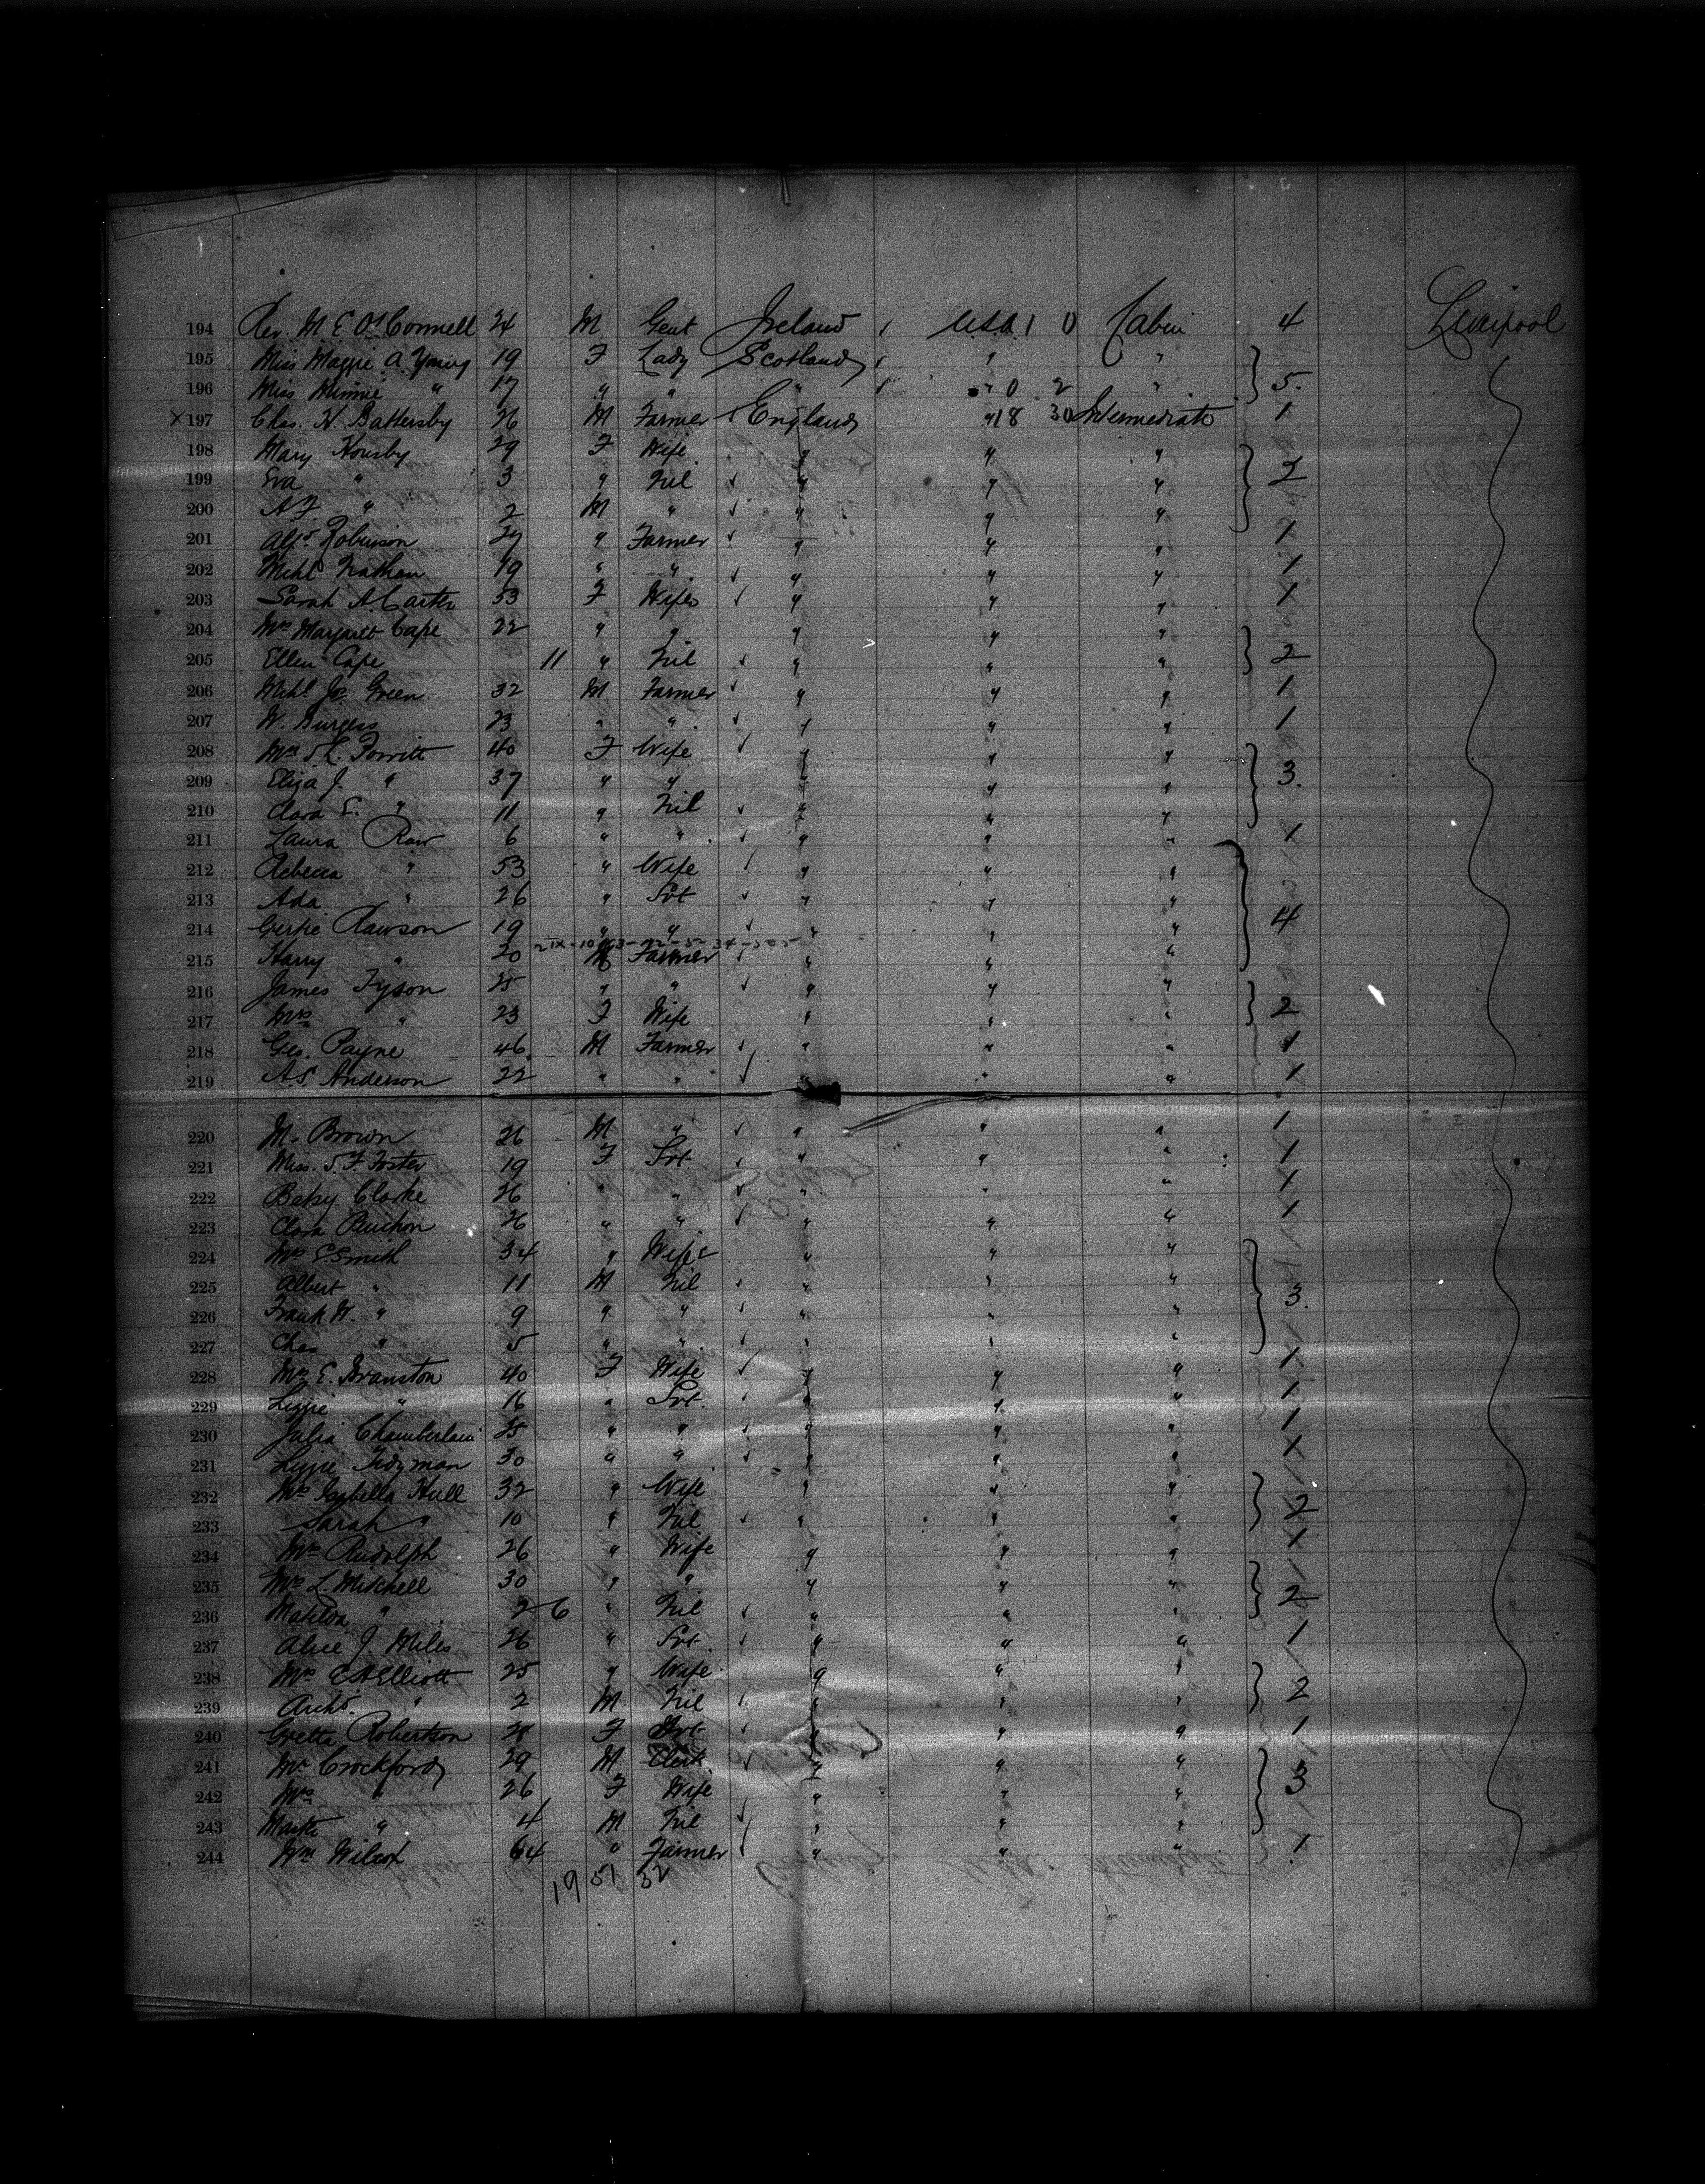 194 Rev. M E O'Connell 24 M Gent Ireland / U.S.A. 1 0 Cabin 4 Liverpool
195 Miss Maggie A. Young 19 F Lady Scotland / " " }
196 Miss Minnie " 17 " " " / " 0 2 " } 5.
X 197 Chas. H. Battersby 26 M Farmer England " 18 30 Intermediate 1
198 Mary Housby 29 F Wife " " " }
199 Eva " 3 " Nil " " " } 2
200 A F " 2 M " " " " }
201 Alfd Robinson " Farmer " " " 1
202 Michl Nathan 19 " " " " " 1
203 Sarah A. Carter 53 F Wife " " " 1
204 Mrs Margaret Cape 22 " " " " " }
205 Ellen Cape 11 " Nil " " " } 2
206 Michl Jos Green 32 M Farmer " " " 1
207 W. Burgess 23 " " " " " 1
208 Mrs Porritt 40 F Wife " " " }
209 Eliza J. " 37 " " " " " } 3.
210 Clara E. " 11 " Nil " " " }
211 Laura Raw 6 " " " " " 1
212 Rebecca " 53 " Wife " " " }
213 Ada " 26 " Svt " " " }
214 Gertie Rawson 19 " " " " " } 4
215 Harry " 20 M Farmer " " " }
216 James Tyson 25 " " " " " }
217 Mrs " 23 F Wife " " " } 2
218 Geo. Payne 46 M Farmer " " " 1
219 A S. Anderson 22 " " " " " 1
220 M. Brown 26 M " " " " 1
221 Miss. S. F. Foster 19 F Svt " " " 1
222 Betsy Clarke 26 " " " " " 1
223 Clara 26 " " " " " 1
224 Mrs E. Smith 34 " Wife " " " }
225 Albert " 11 M Nil " " " }
226 Frank H. " 9 " " " " " } 3.
227 Chas " 5 " " " " " }
228 Mrs E. Branston 40 F Wife " " " 1
229 Lizzie " 16 " Svt. " " " 1
230 Julia Chamberlain 25 " " " " " 1
231 Lizzie Tidyman 30 " " " " " 1
232 Mrs Isabella Hull 32 " Wife " " " }
233 Sarah " 10 " Nil " " " } 2
234 Mrs Rudolph 26 " Wife " " " 1
235 Mrs L. Mitchell 30 " " " " " }
236 Matilda " 2 6 " Nil " " " } 2
237 Alice J Miles 26 " Svt. " " " 1
238 Mrs E A Elliott 25 " Wife " " " }
239 Archd. " 2 M Nil " " " } 2
240 Gretta Robertson 28 F Svt " " " 1
241 Mr Crockford 29 M Clerk " " " }
242 Mrs " 26 F Wife " " " } 3
243 Mastr " 4 M Nil " " " }
244 Wm Wilcox 64 " Farmer " " " 1
19 51 32